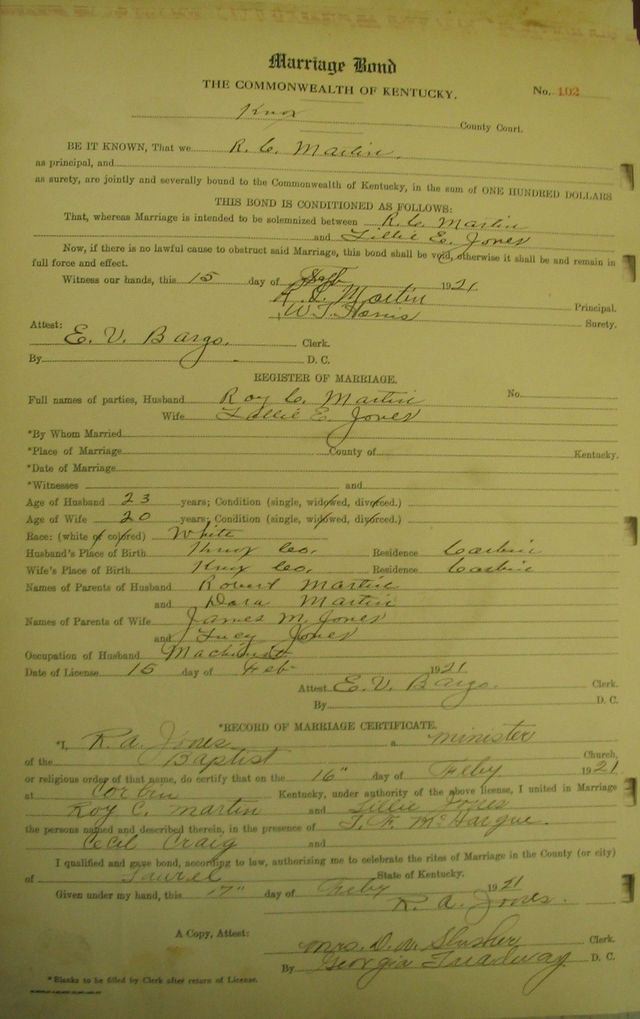 Marriage Bond
THE COMMONWEALTH OF KENTUCKY. No. 102
Knox County Court.
BE IT KNOWN, That we R. C. Martin,
as principal, and
as surety, are jointly and severally bound to the Commonwealth of Kentucky, in the sum of ONE HUNDRED DOLLARS
THIS BOND IS CONDITIONED AS FOLLOWS:
That, whereas Marriage is intended to be solemnized between R. C. Martin
and Lillie E. Jones
Now, if there is no lawful cause to obstruct said Marriage, this bond shall be void, otherwise it shall be and remain in
full force and effect.
Witness our hands, this 15 day of Feb 1921
R. C. Martin Principal.
W. T. Surety.
Attest:
E. V. Bargo. Clerk.
By D. C.
REGISTER OF MARRIAGE.
Full names of parties, Husband Roy C. Martin No.
Wife Lillie E. Jones
*By Whom Married
*Place of Marriage County of Kentucky.
*Date of Marriage
*Witnesses and
Age of Husband 23 years; Condition (single, widowed, divorced.)
Age of Wife 20 years; Condition (single, widowed, divorced.)
Race: (white of colored) White
Husband's Place of Birth Knox Co. Residence Corbin
Wife's Place of Birth Knox Co. Residence Corbin
Names of Parents of Husband Robert Martin
and Dora Martin
Names of Parents of Wife James M. Jones
and Lucy Jones
Occupation of Husband Machinist
Date of License 15 day of Feb 1921
Attest E. V. Bargo. Clerk.
By D. C.
*RECORD OF MARRIAGE CERTIFICATE.
*I, R. A. Jones a minister
of the Baptist Church,
or religious order of that name, do certify that on the 16" day of Feby 1921
at Corbin Kentucky, under authority of the above license, I united in Marriage
Roy C. Martin and Lillie Jones
the persons named and described therein, in the presence of T. F. McHargue.
Cecil Craig and
I qualified and gave bond, according to law, authorizing me to celebrate the rites of Marriage in the County (or city)
of Laurel State of Kentucky.
Given under my hand, this 17" day of Feby 1921
R. A. Jones.
A Copy, Attest: Mrs. D. W. Slusher Clerk.
By Georgia Treadway D. C.
*Blanks to be filled by Clerk after return of License.